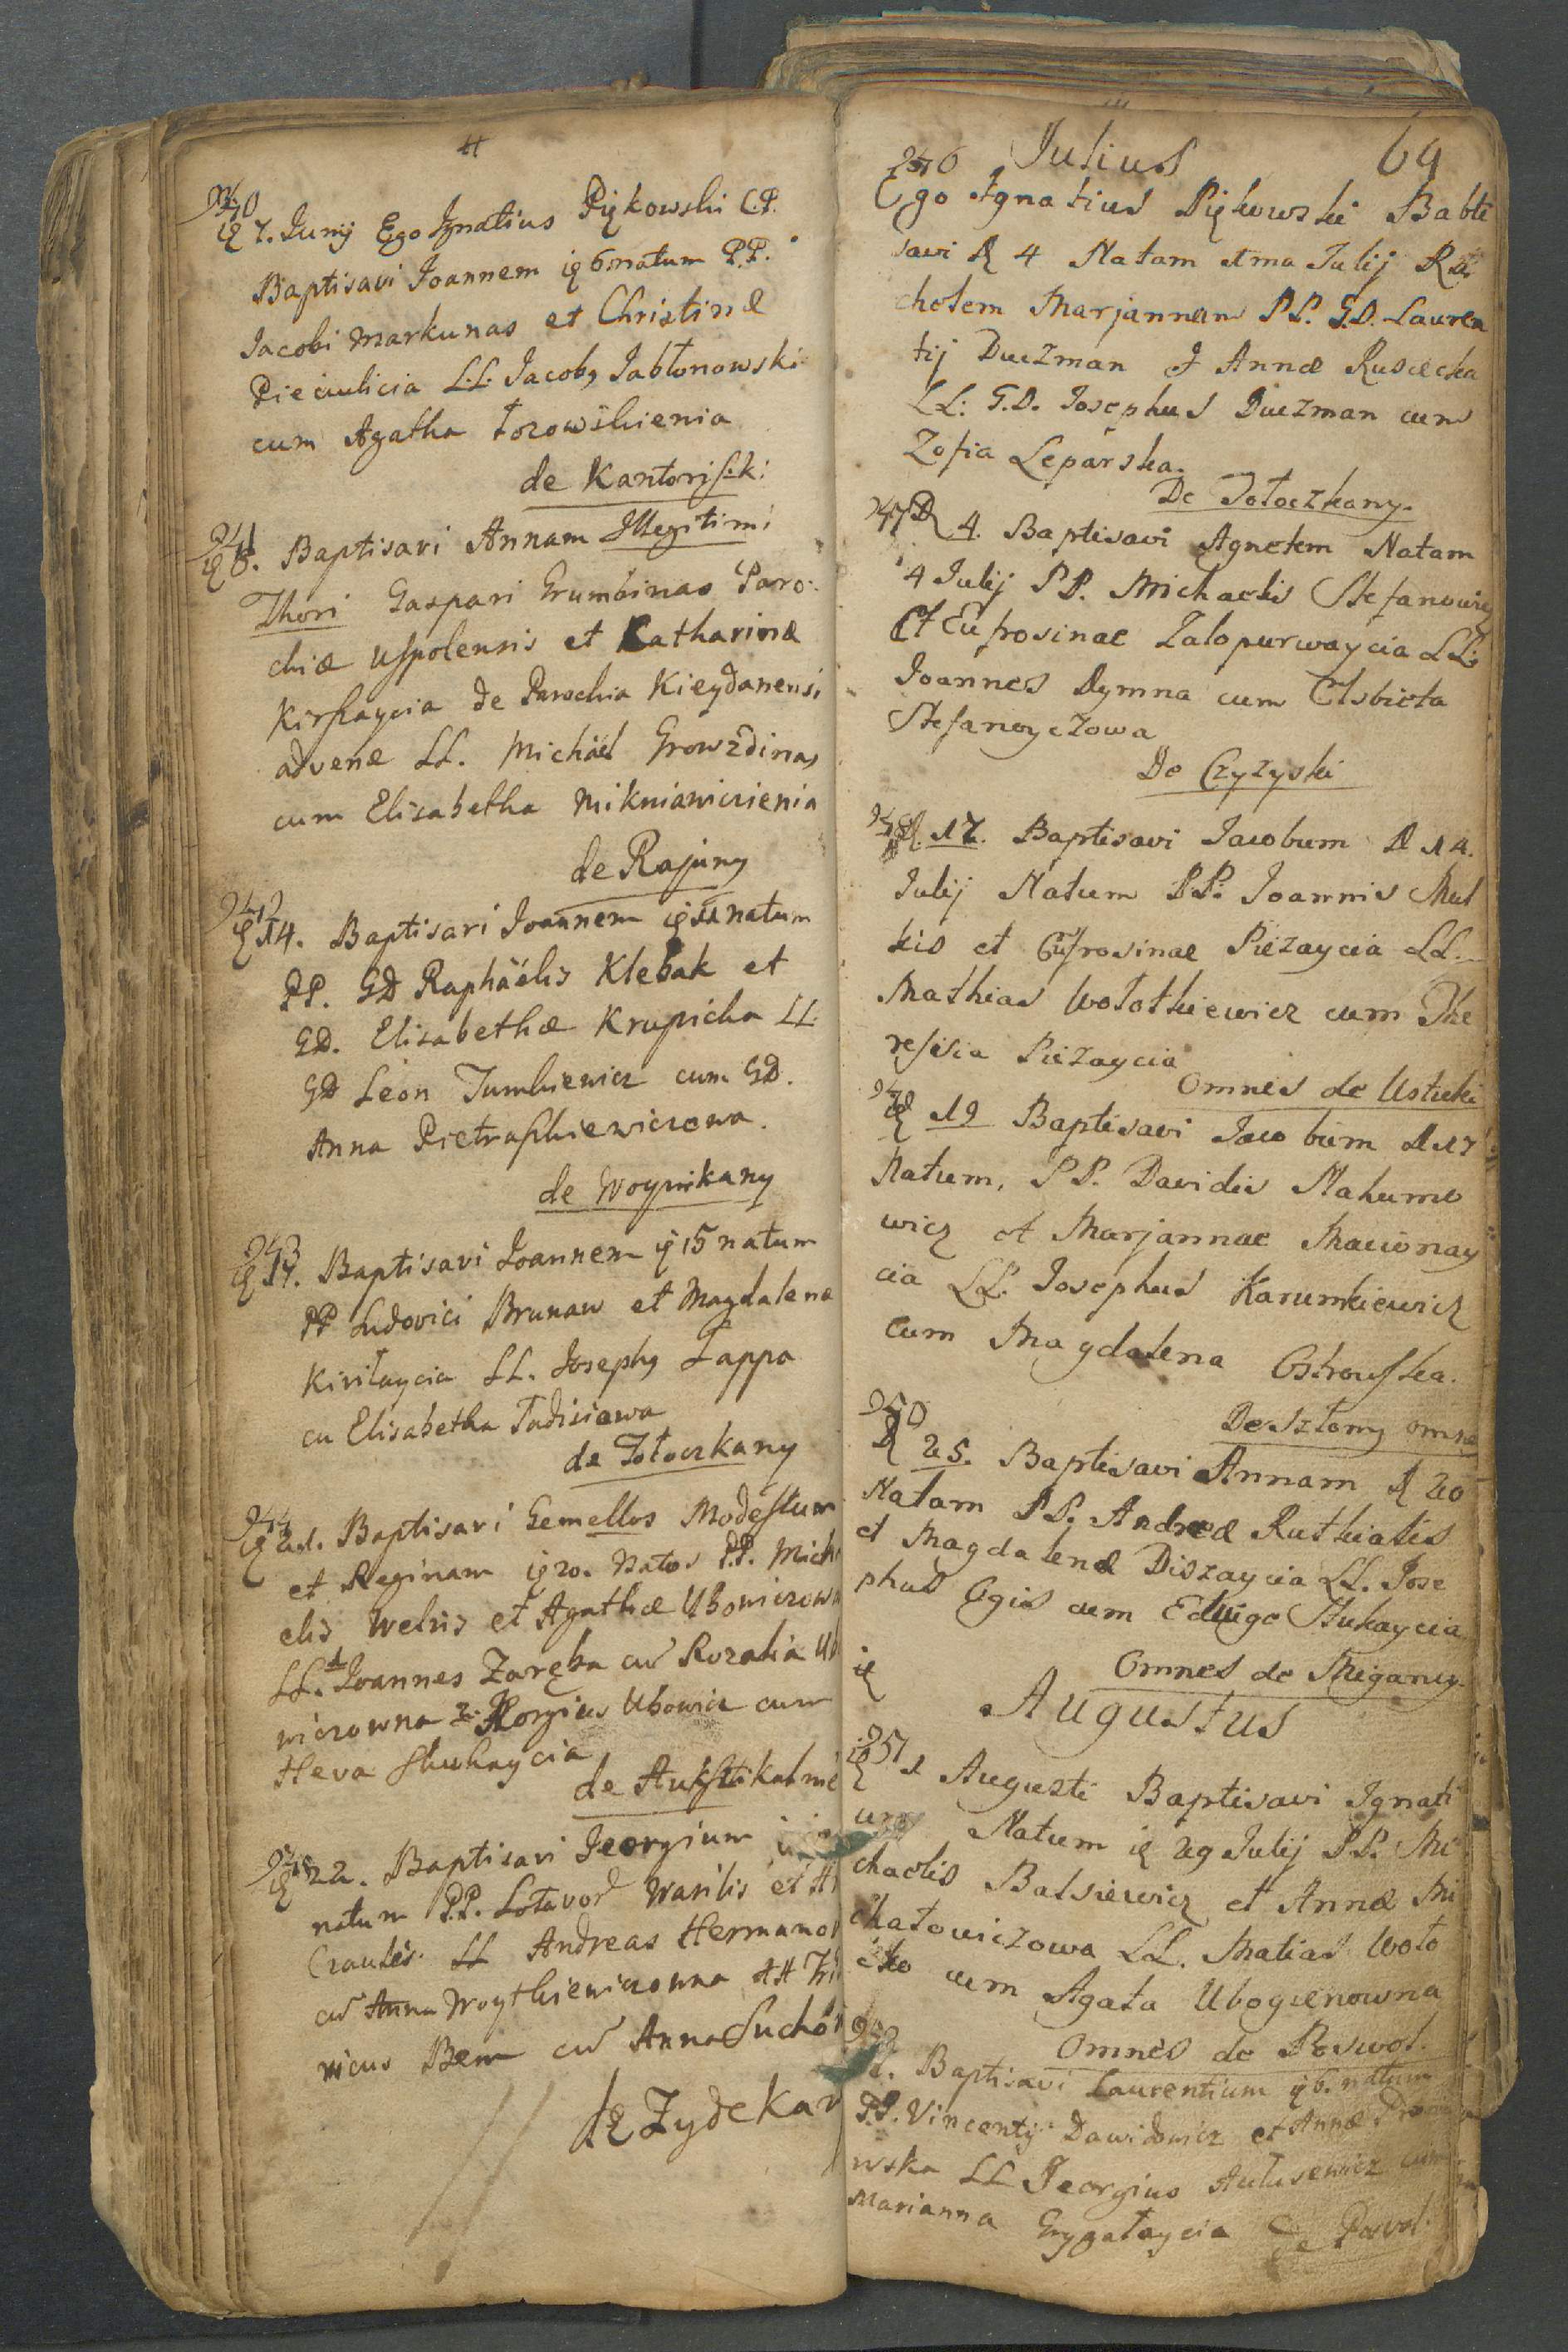 940
7. Junij Ego Ignatius Piękowski C.P.
Baptisavi Joannem 6 natum P.P.
Jacobi Markunas et Christinæ
Pieciulicia L.L. Jacobg Jabłonowski
cum Agatha
de Kantoriszk:
941
8. Baptisavi Annam Illegitimi
Thori Gaspari Grumbinas Paro-
chiæ Uspolensis et Catharinæ
Kirszaycia de Parochia Kieydanensi
advenæ LL. Michäel Growzdinas
cum Elisabetha Mikniawiczienia
de Rajuny
942
14. Baptisavi Joannem 11 natum
PP. GD Raphäelis Klebak et
GD. Elisabethæ Krupicka LL.
GD Leon Jumkiewicz cum GD.
Anna Pietraszkiewiczowa.
de Woynikany
943
17. Baptisavi Joannem 15 natum
PP Ludovici Brunaw et Magdalenæ
Kiriłaycia LL. Josephg Łappa
cu Elisabetha Tadisiowa
de Tołoczkany
944
21. Baptisavi Gemellos Modestum
et Reginam 20. Natos P.P. Mich
elis Welsis et Agathæ Ubowiczown
LL. 1 Joannes Zaręba cu Rozalia Ub
wiczowna 2. Georgius Ubowicz cum
Heva Skukaycia
de
945
22. Baptisavi Georgium
natum P.P. Łotavor Wasilis et
LL Andreas Hermano
cu Anna Woytkiewiczowna
nicus Bem cu Anna Suchó
de Zydekan
946 Julius 69
Ego Ignatius Piękowski Babti
savi D 4 Natam 1ma Julij Ra
chelem Marjannam P.P. G.D. Lauren
tij Duczman et Annæ Rusiecka
LL: G.D. Josephus Duczman cum
Zofia Leparska.
De Tołoczkany.
947 D 4. Baptisavi Agnetem Natam
4 Julij PP. Michaelis Stefanowicz
Et Eufrosinae Zalopurwaycia LL:
Joannes Dymna cum Elsbieta
Stefanoyczowa
De Czyzyski
948 D. 17. Baptisavi Jacobum D 14.
Julij Natum P.P: Joannis Mul
kis et Eufrosinae Piezaycia LL.
Mathias Wołotkiewicz cum The
ressia Piezaycia
Omnes de Ustuki
949
19 Baptisavi Jacobum D 17
Natum, PP. Davidis Nahumo
wicz et Marjannae Macionay
cia LL. Josephus Karumkiewicz
cum Magdalena Ostrowska.
De Sztomy omne
950
D 25. Baptisavi Annam D 20
Natam PP. Andreæ Rutkialis
et Magdalenæ Diszaycia LL. Jose
phus Ogis cum Edwige Stukaycia
Omnes de Miegancy
Augustus
951
1 Augusti Baptisavi Ignati
um Natum 29 Julij PP. Mi
chaelis Balsiewicz et Annæ Mi
chałowiczowa LL. Matias Woło
cko cum Agata Ubogienowna
Omnes de Poswol.
952
Baptisavi Laurentium 6. natum
P.P. Vincentij Dawidowicz et Annæ
wska LL Georgius Autusewicz cum
Marianna Grygałaycia de Posvol.